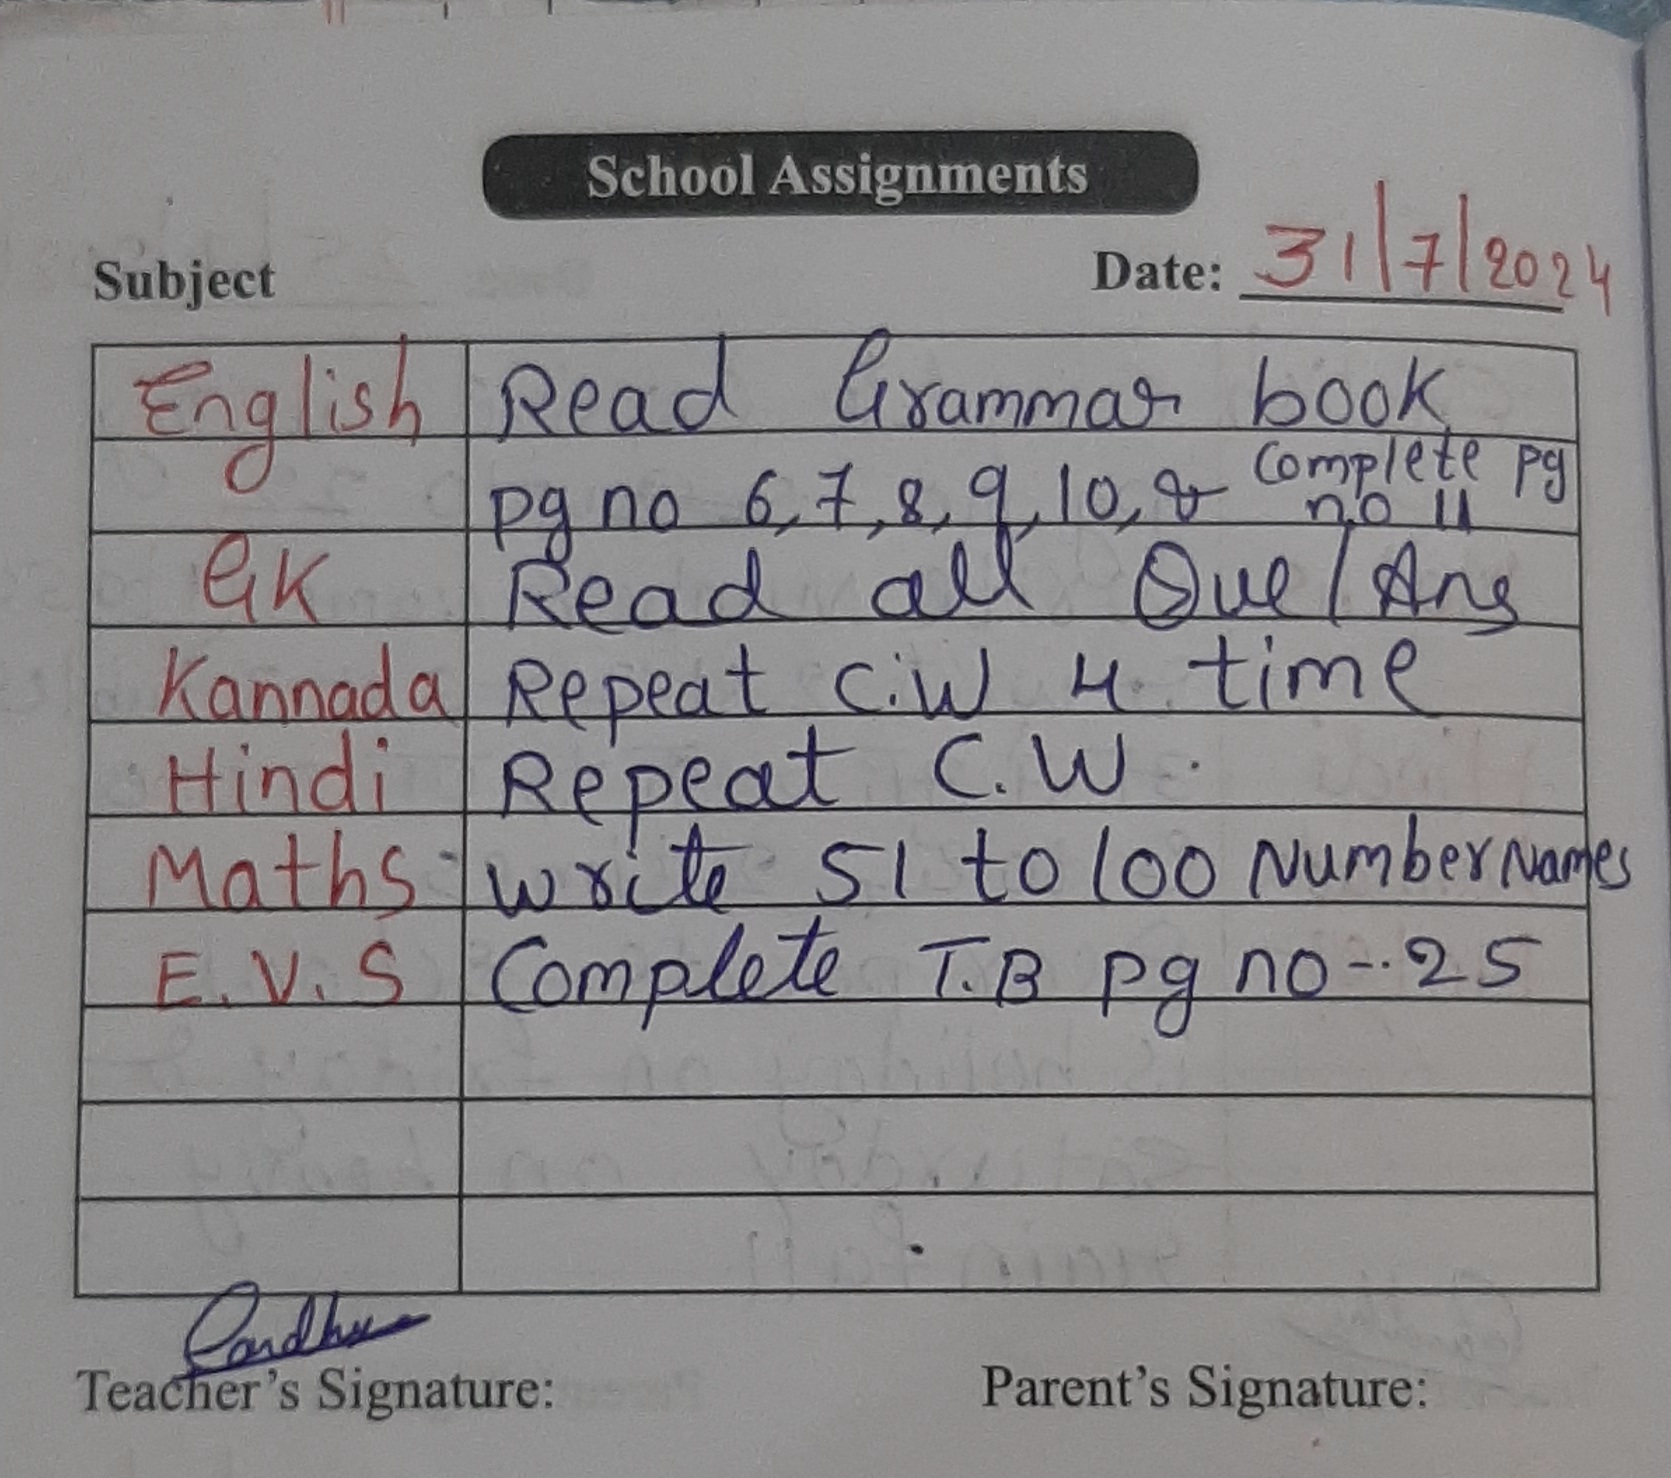 School Assignments
Subject Date: 31/7/2024
English Read Grammar book
pg no 6, 7, 8, 9, 10, & Complete pg
no 11
GK Read all Que/Ans
Kannada Repeat C.W 4 time
Hindi Repeat C.W.
Maths write 51 to 100 Number Names
E.V.S Complete T.B pg no - 25
Teacher's Signature: Parent's Signature: